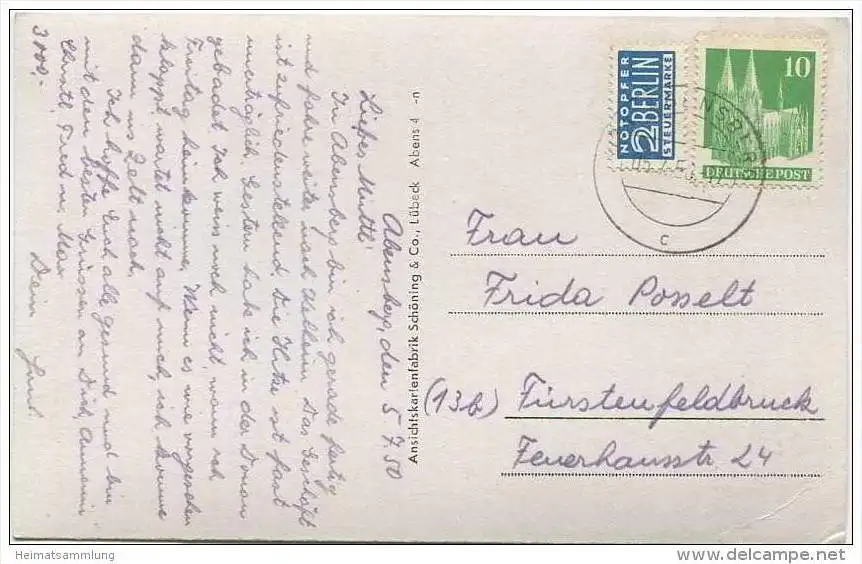 Abensberg, den 5.7.50
Liebes Muttl
In Abensberg bin ich gerade fertig
und fahre weiter nach Kelheim. Das Geschäft
ist zufriedenstellend. Die Hitze ist fast
unerträglich. Gestern habe ich in der Donau
gebadet. Ich weis noch nicht, wann ich
Freitag heimkomme. Wenn es wie vorgesehen
klappt, wartet nicht auf mich, ich komme
dann ins Zelt nach.
Ich hoffe Euch alle gesund und bin
mit den besten Grüssen an Dich,
Christl, Fred u. Max
Dein
3000,-
Ansichtskartenfabrik Schöning & Co., Lübeck Abens 4 -n
NOTOPFER
2 BERLIN
STEUERMARKE
10
DEUTSCHE POST
c
Frau
Frida Posselt
(13b) Fürstenfeldbruck
Feuerhausstr. 24
Heimatsammlung
www.delcampe.net